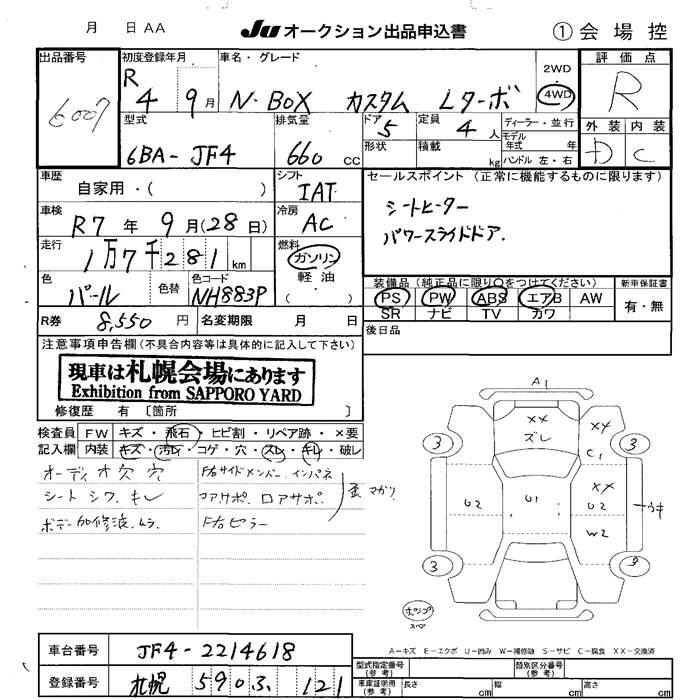 月 日 AA JU オークション出品申込書 ① 会場控
出品番号 初度登録年月 車名・グレード 2WD・4WD 評価点
6007 R4 9月 N-BOX カスタム Lターボ R
型式 排気量 ドア 定員 ディーラー・並行 外装 内装
6BA-JF4 660cc 5 4人 モデル年式 年 D C
形状 積載 kg ハンドル 左・右
車歴 シフト セールスポイント (正常に機能するものに限ります)
自家用・( ) IAT シートヒーター
車検 冷房 パワースライドドア.
R7年 9月(28日) AC
走行 燃料
1万7千281km ガソリン
軽油
( )
色 色替 色コード 装備品 (純正品に限り○をつけてください) 新車保証書
パール NH883P PS PW ABS エアB AW 有・無
SR ナビ TV カワ
R券 8,550円 名変期限 月 日 後日品
注意事項申告欄(不具合内容等は具体的に記入して下さい)
現車は札幌会場にあります
Exhibition from SAPPORO YARD
修復歴 有 〔箇所 〕
検査員 FW キズ・飛石・ヒビ割・リペア跡・×要
記入欄 内装 キズ・汚レ・コゲ・穴・スレ・キレ・破レ
オーディオ欠 穴
シート シワ.キレ
ボデー加修波.ムラ
F右サイドメンバー.インパネ
コアサポ.ロアサポ.
F右ピラー
歪 マガリ
A1
XX ズレ
XX C1
3 3
U2 U1 XX U2 ウキ
W2
3 3
ポンプ
スペア
A-キズ E-エクボ U-凹み W-補修跡 S-サビ C-腐食 XX-交換済
車台番号 JF4-2214618
登録番号 札幌 590 3 121
型式指定番号(参考) 類別区分番号(参考)
車庫証明用(参考) 長さ cm 幅 cm 高さ cm